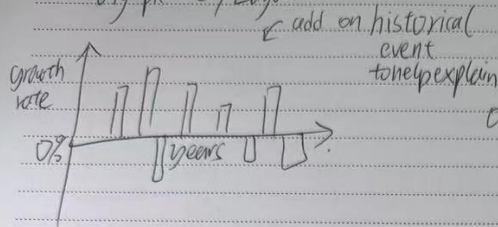 add on historical
event
to help explain
growth
rate
0%
years